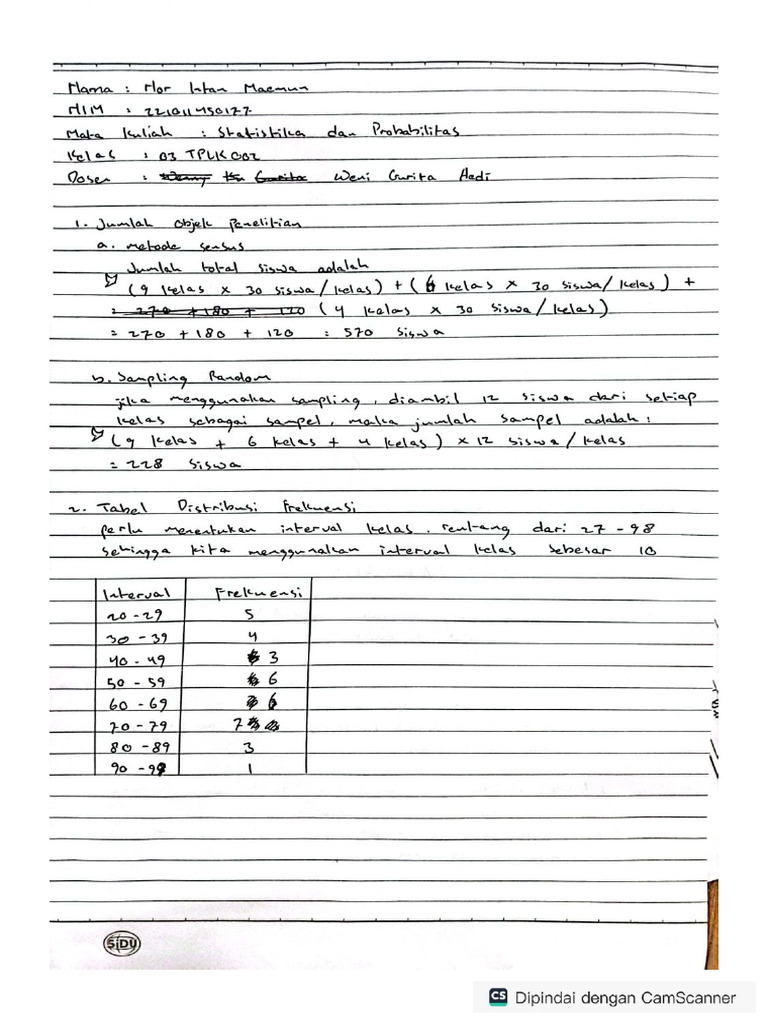 Nama : Nor Intan Maemun
NIM : 221011450177
Mata Kuliah : Statistika dan Probabilitas
Kelas : 03 TPLK002
Dosen : Weni Gurita Aedi
1. Jumlah Objek Penelitian
a. metode sensus
Jumlah total siswa adalah
(9 kelas x 30 siswa/kelas) + (6 kelas x 30 siswa/kelas) +
= 270 + 180 + 120 (4 kelas x 30 siswa/kelas)
= 270 + 180 + 120 = 570 siswa
b. Sampling Random
jika menggunakan sampling, diambil 12 siswa dari setiap
kelas sebagai sampel, maka jumlah sampel adalah :
(9 kelas + 6 kelas + 4 kelas) x 12 siswa/kelas
= 228 siswa
2. Tabel Distribusi Frekuensi
perlu menentukan interval kelas. rentang dari 27 - 98
sehingga kita menggunakan interval kelas sebesar 10
Interval Frekuensi
20 - 29 5
30 - 39 4
40 - 49 3
50 - 59 6
60 - 69 6
70 - 79 7
80 - 89 3
90 - 98 1
SiDU
CS Dipindai dengan CamScanner